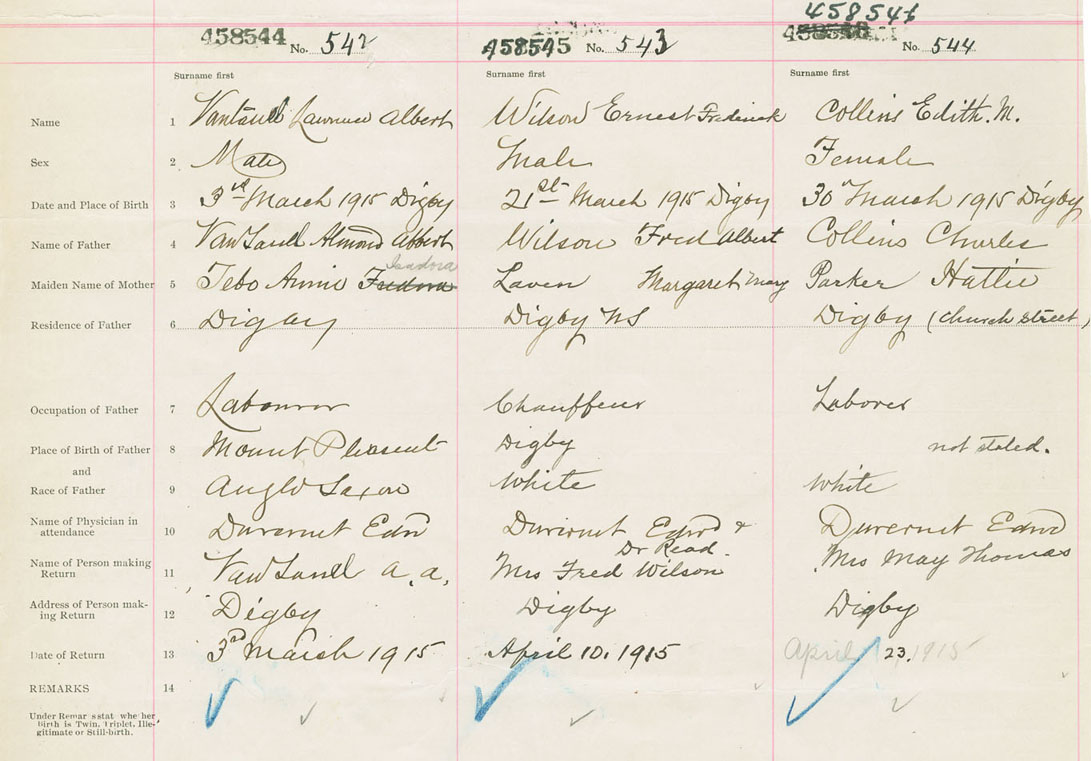 458544 No. 542
458545 No. 543
458546 No. 544
Surname first Surname first Surname first
Name 1 Albert Wilson Ernest Frederick Collins Edith. M.
Sex 2 Male Male Female
Date and Place of Birth 3 3rd March 1915 Digby 21st March 1915 Digby 30th March 1915 Digby
Name of Father 4 Albert Wilson Fred Albert Collins Charles
Isadora
Maiden Name of Mother 5 Tebo Annie Fredora Laven Margaret Mary Parker Hattie
Residence of Father 6 Digby Digby NS Digby (Church street)
Occupation of Father 7 Labourer Chauffeur Laborer
Place of Birth of Father 8 Mount Pleasent Digby not stated.
and
Race of Father 9 Anglo Saxon White White
Name of Physician in
attendance 10 Duvernet Edw Duvernet Edwd & Duvernet Edwd
Dr Read.
Name of Person making
Return 11 A. A. Mrs Fred Wilson Mrs May Thomas
Address of Person mak-
ing Return 12 Digby Digby Digby
Date of Return 13 3rd March 1915 April 10. 1915 April 23. 1915
REMARKS 14
Under Remarks stat whe her
Birth is Twin, Triplet, Ille-
gitimate or Still-birth.